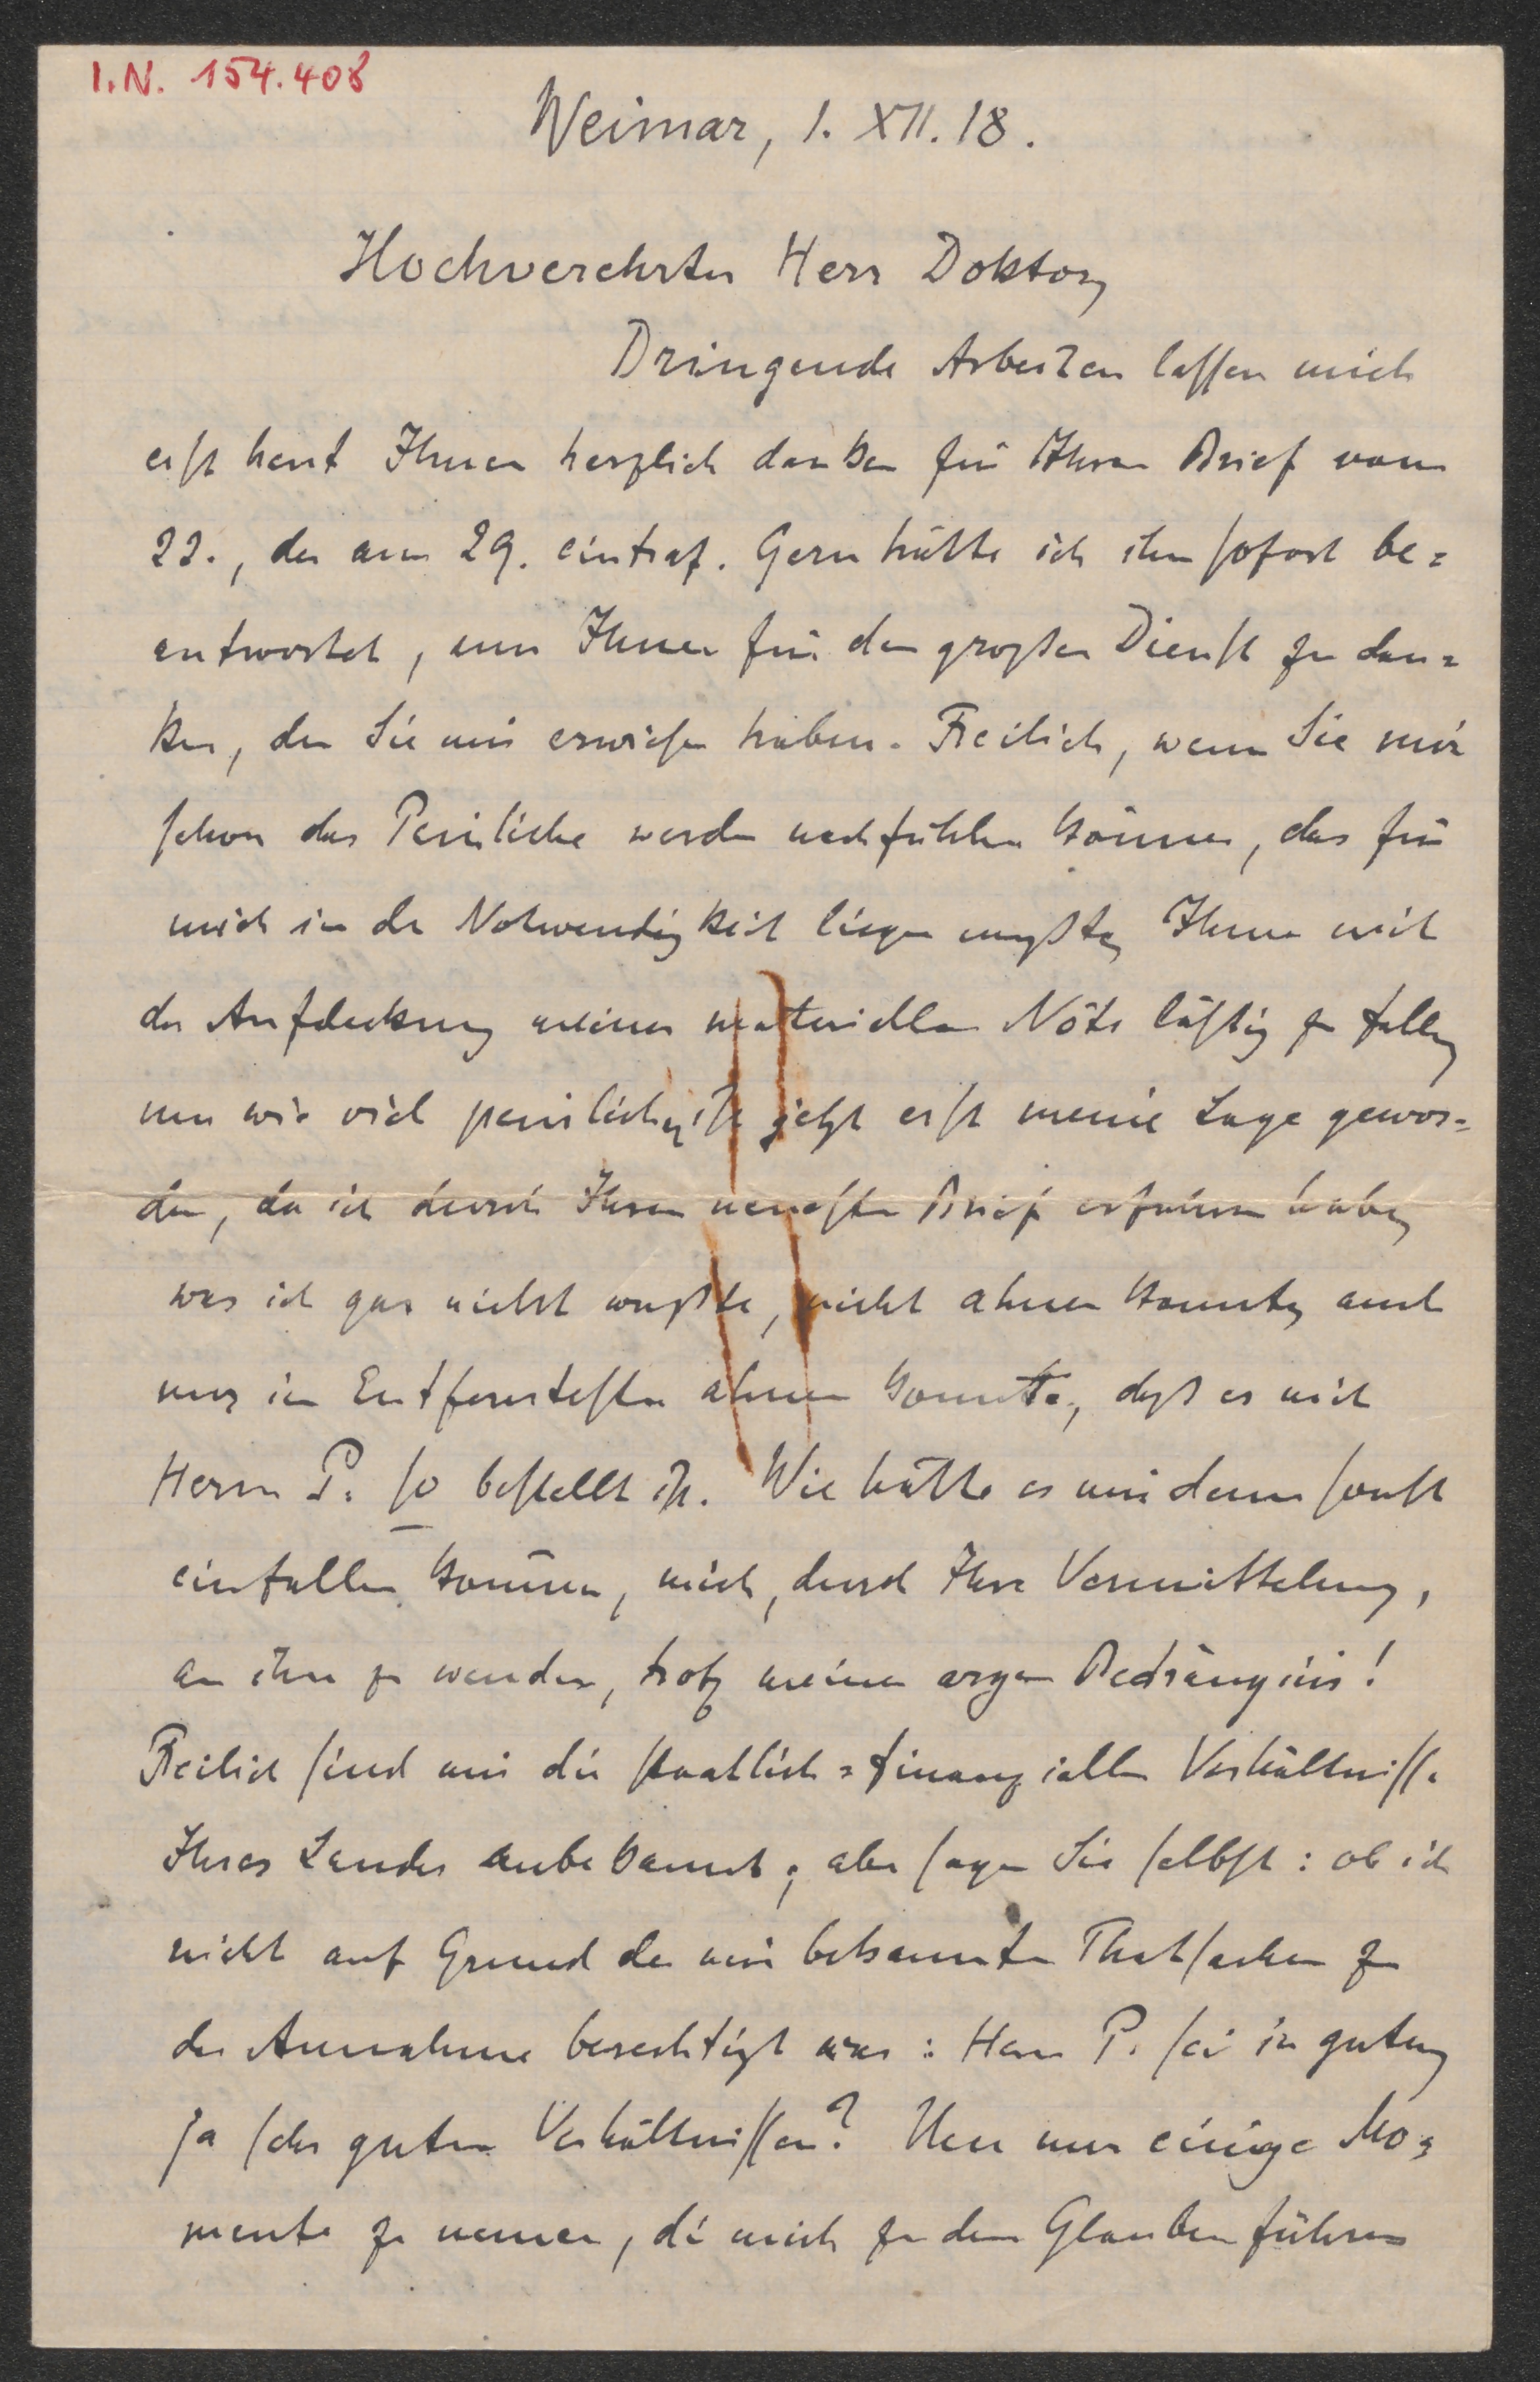 I.N. 154.408
Weimar, 1. XII. 18.
Hochverehrter Herr Doktor,
Dringende Arbeiten lassen mich
erst heut Ihnen herzlich danken für Ihren Brief vom
22., der am 29. eintraf. Gern hätte ich ihn sofort be=
antwortet, um Ihnen für den großen Dienst zu dan=
ken, den Sie mir erwiesen haben. Freilich, wenn Sie mir
schon das Peinliche werden nachfühlen können, das für
mich in der Notwendigkeit liegen mußte, Ihnen mit
der Aufdeckung meiner materiellen Nöte lästig zu fallen,
um wie viel peinlicher ist jetzt erst meine Lage gewor=
den, da ich durch Ihren neuesten Brief erfahren habe,
was ich gar nicht wußte, nicht ahnen konnte, auch
nur im Entferntesten ahnen konnte, daß es mit
Herrn P. so bestellt ist. Wie hätte es mir denn sonst
einfallen können, mich, durch Ihre Vermittelung,
an ihn zu wenden, trotz meiner argen Bedrängnis!
Freilich sind mir die staatlich=finanziellen Verhältnisse
Ihres Landes unbekannt; aber sagen Sie selbst: ob ich
nicht auf Grund der mir bekannten Thatsachen zu
der Annahme berechtigt war: Herr P. sei in guten,
ja sehr guten Verhältnissen? Um nur einige Mo=
mente zu nennen, die mich zu dem Glauben führen